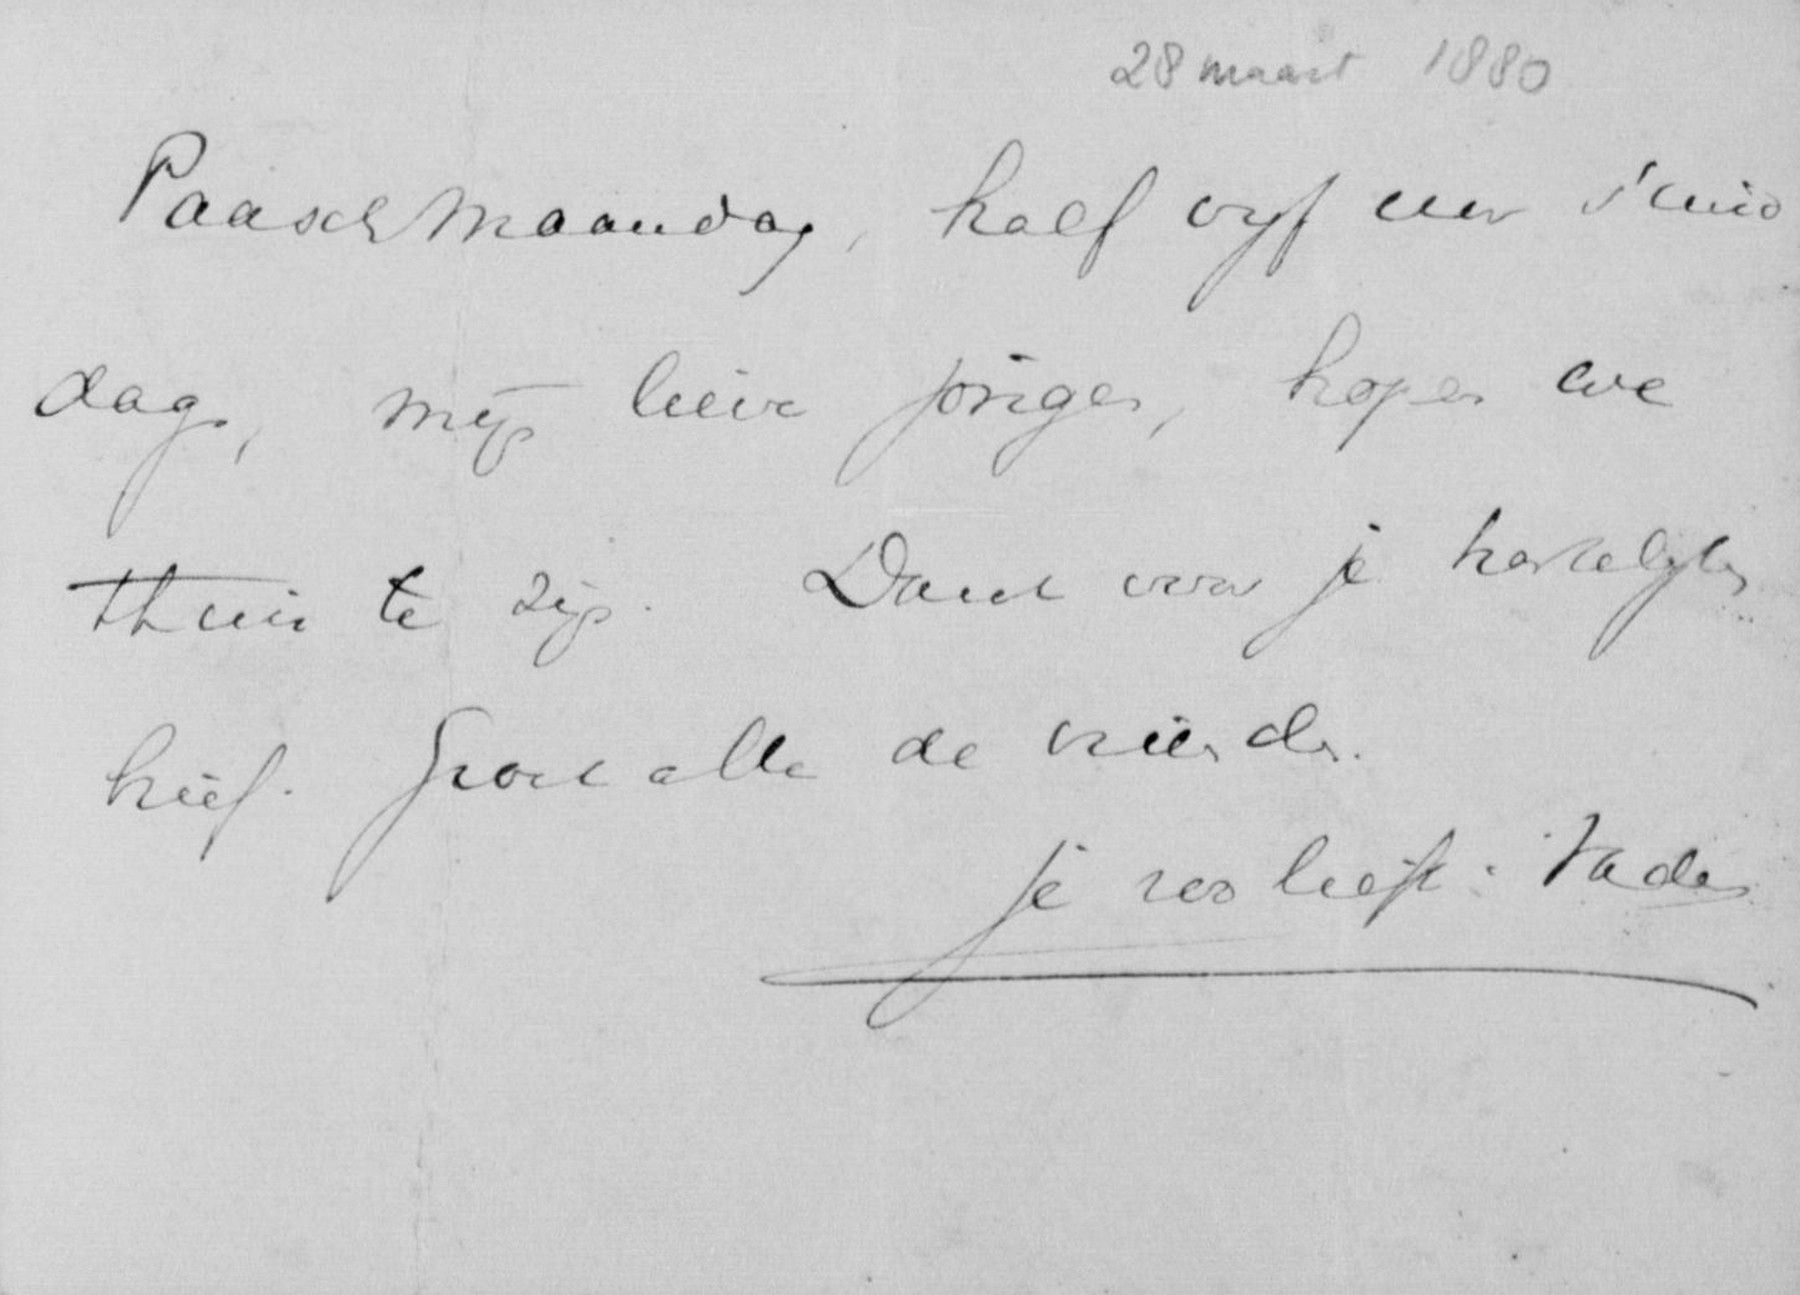 28 maart 1880
Paaschmaandag, half vyf uur s'mid
dags, mijn lieve jongen, hopen we
thuis te zijn. Dank voor je hartelyken
brief. Groet alle de vrienden.
je zeer liefh. Vader